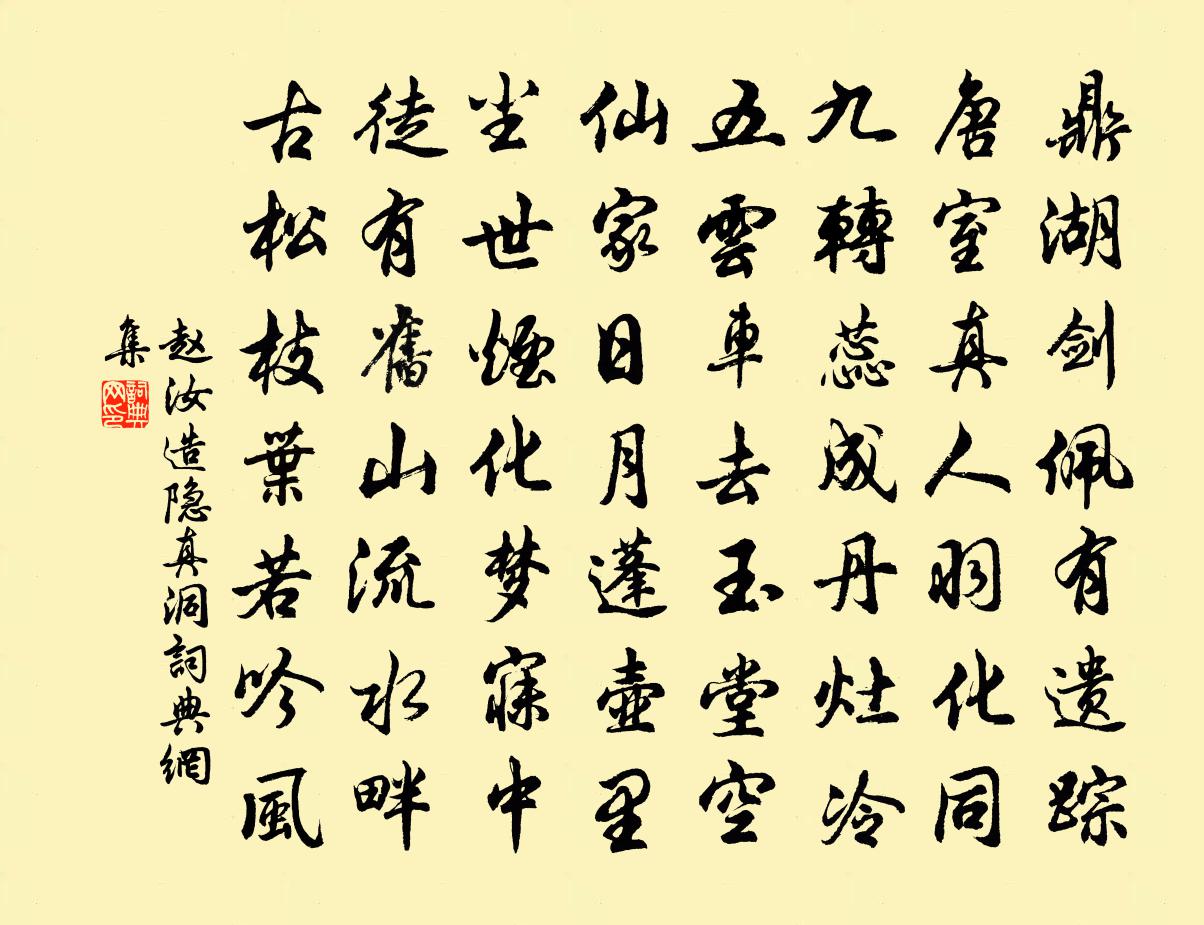 鼎湖剑佩有遗踪
唐室真人羽化同
九轉蕊成丹灶冷
五雲車去玉堂空
仙家日月蓬壺里
尘世煙化梦寐中
徒有舊山流水畔
古松枝葉若吟風
赵汝造隐真洞詞典網
集
詞典
网印